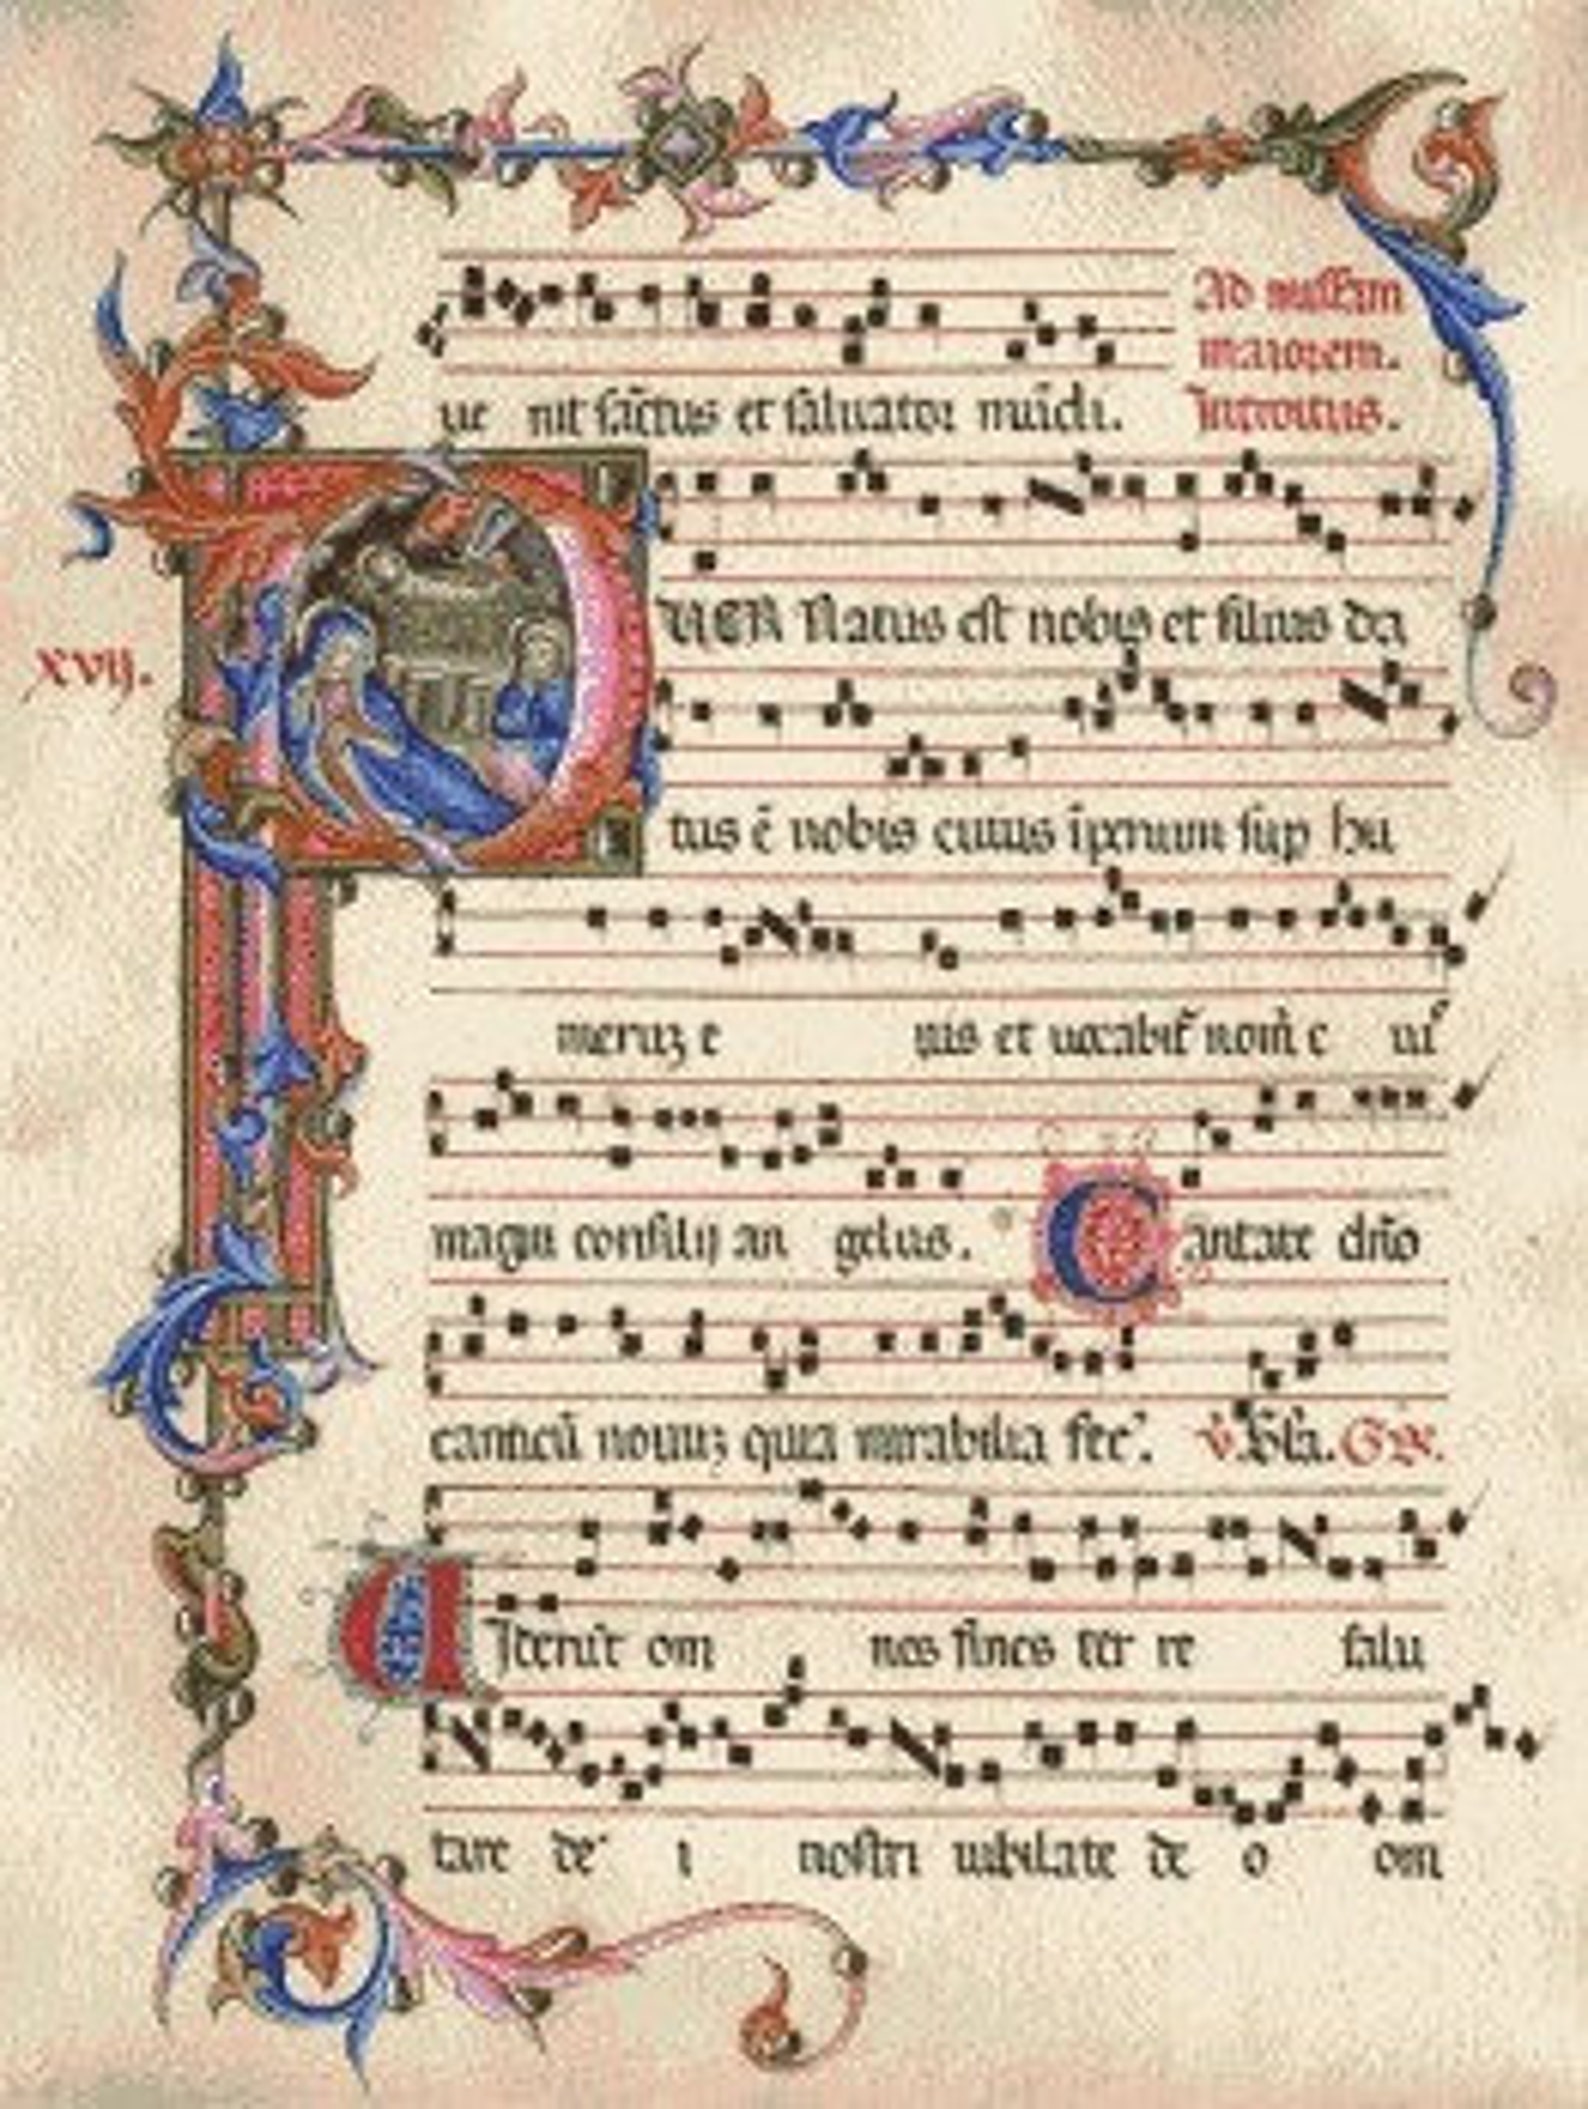 Ad missam
maiorem.
ue nit sāctus et saluator mūdi. Introitus.
PUER Natus est nobis et filius da
xvij.
tus ē nobis cuius īperium sup hu
meruʒ e ius et uocabit nom̄ e
magni consilij an gelus. Cantate dn̄o
canticū nouuʒ quia mirabilia fec. v. GR.
UJderūt om nes fines ter re salu
tare de i nostri iubilate de o om